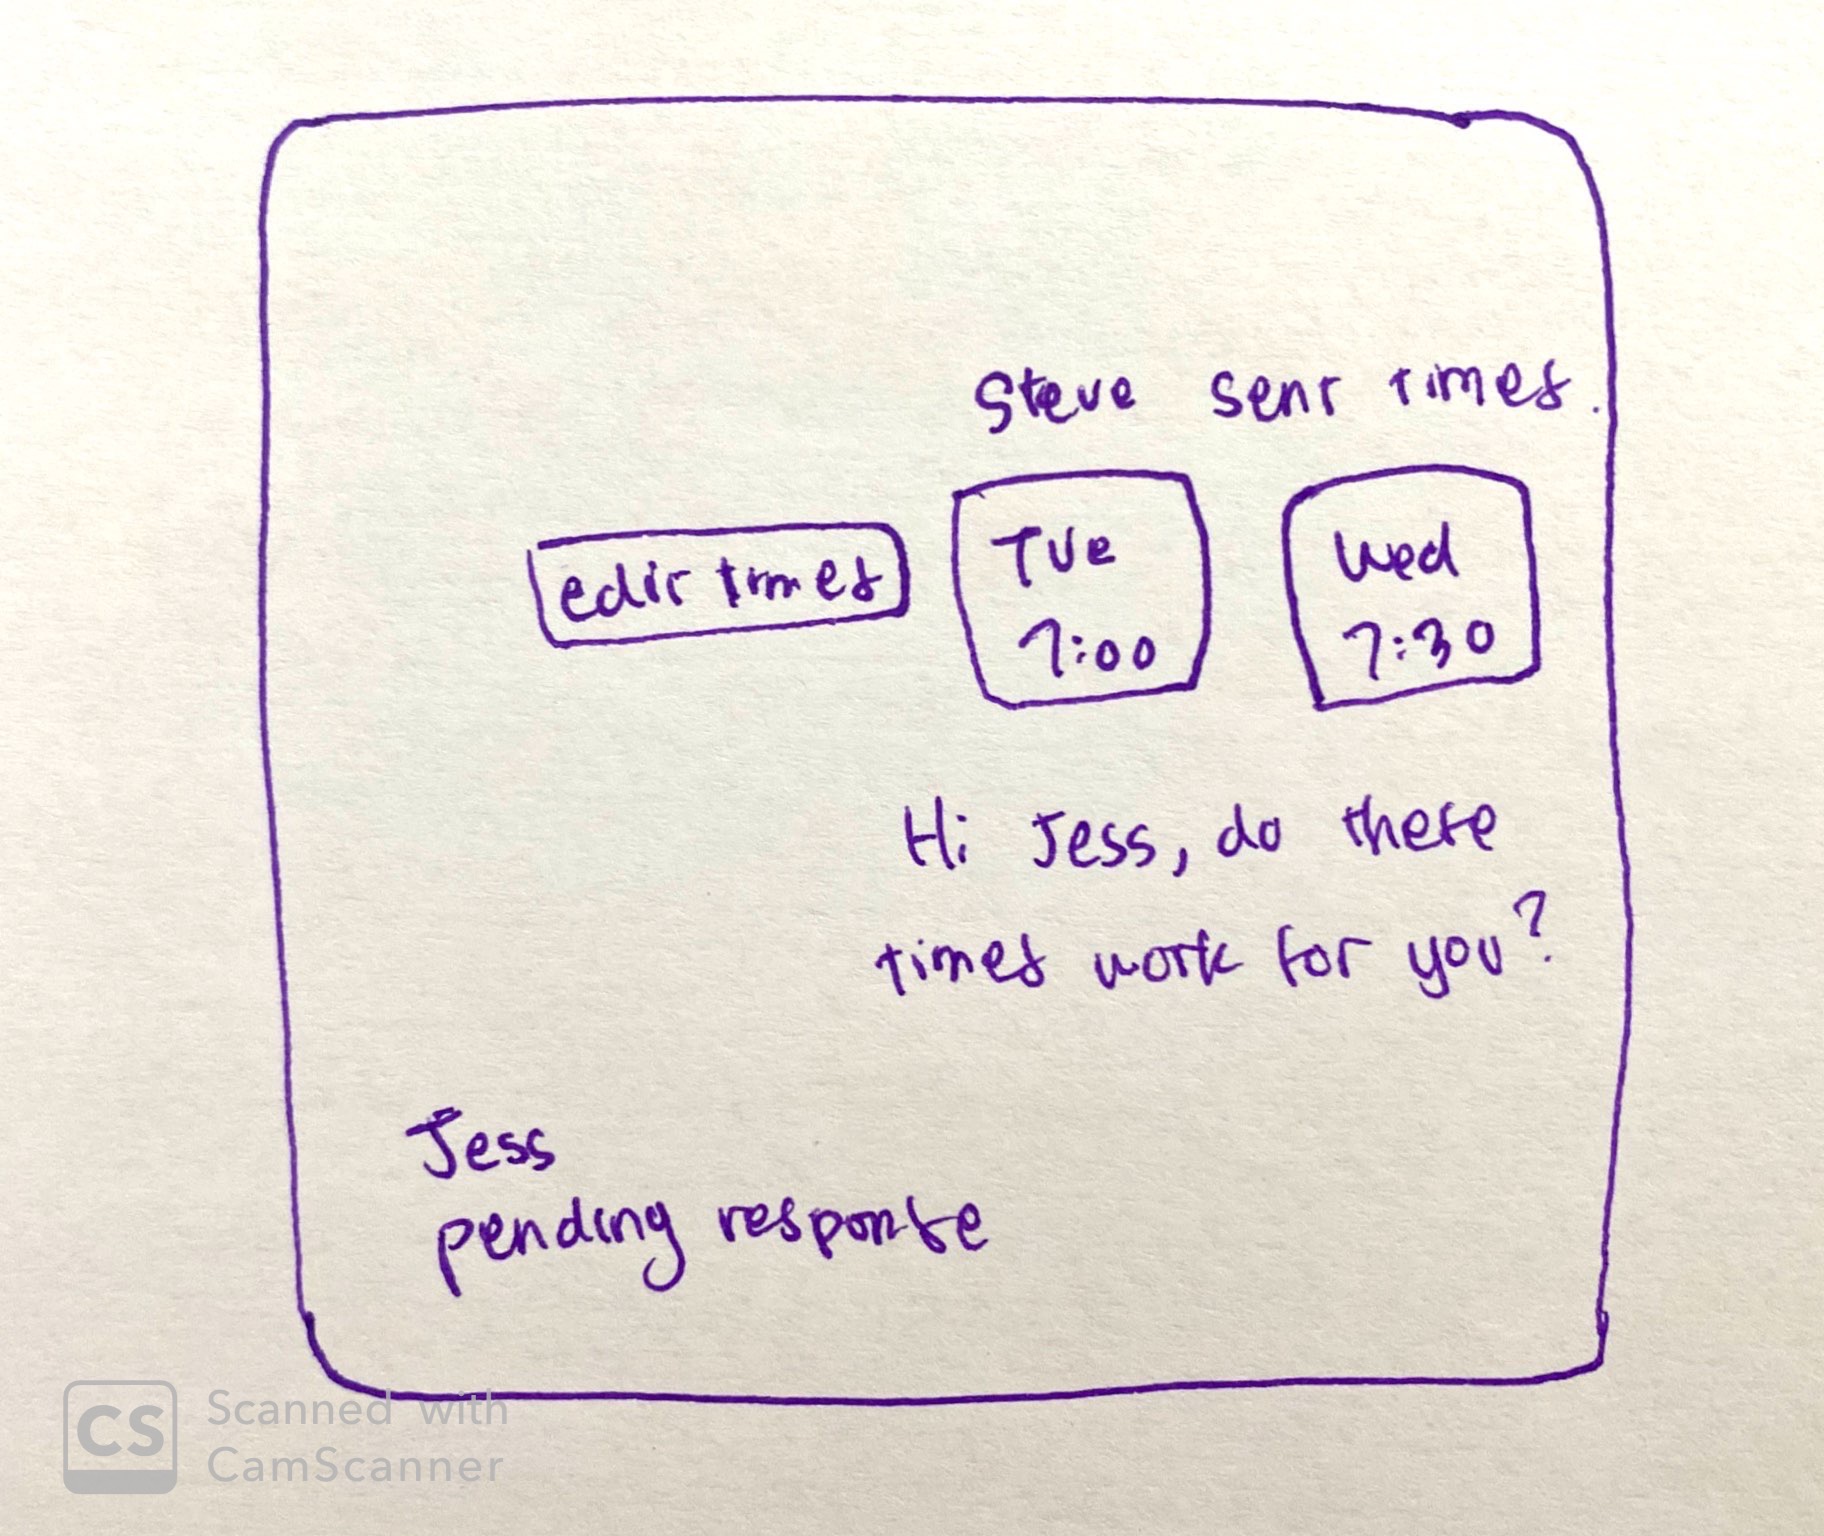 Steve sent times.
edit times
Tue
7:00
Wed
7:30
Hi Jess, do these
times work for you?
Jess
pending response
CS
Scanned with
CamScanner